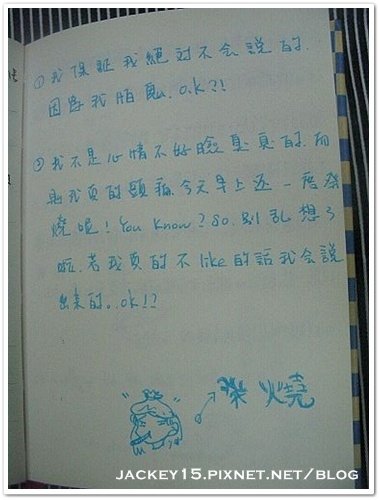 ①我保証我絕対不会説的.
因為我怕鬼. o.k?!
②我不是心情不好臉臭臭的.而
且我真的頭痛今天早上还一度發
燒呢! You Know? So. 別乱想了
啦. 若我真的不like的話我会説
出來的。ok!?
發燒
JACKEY15.PIXNET.NET/BLOG